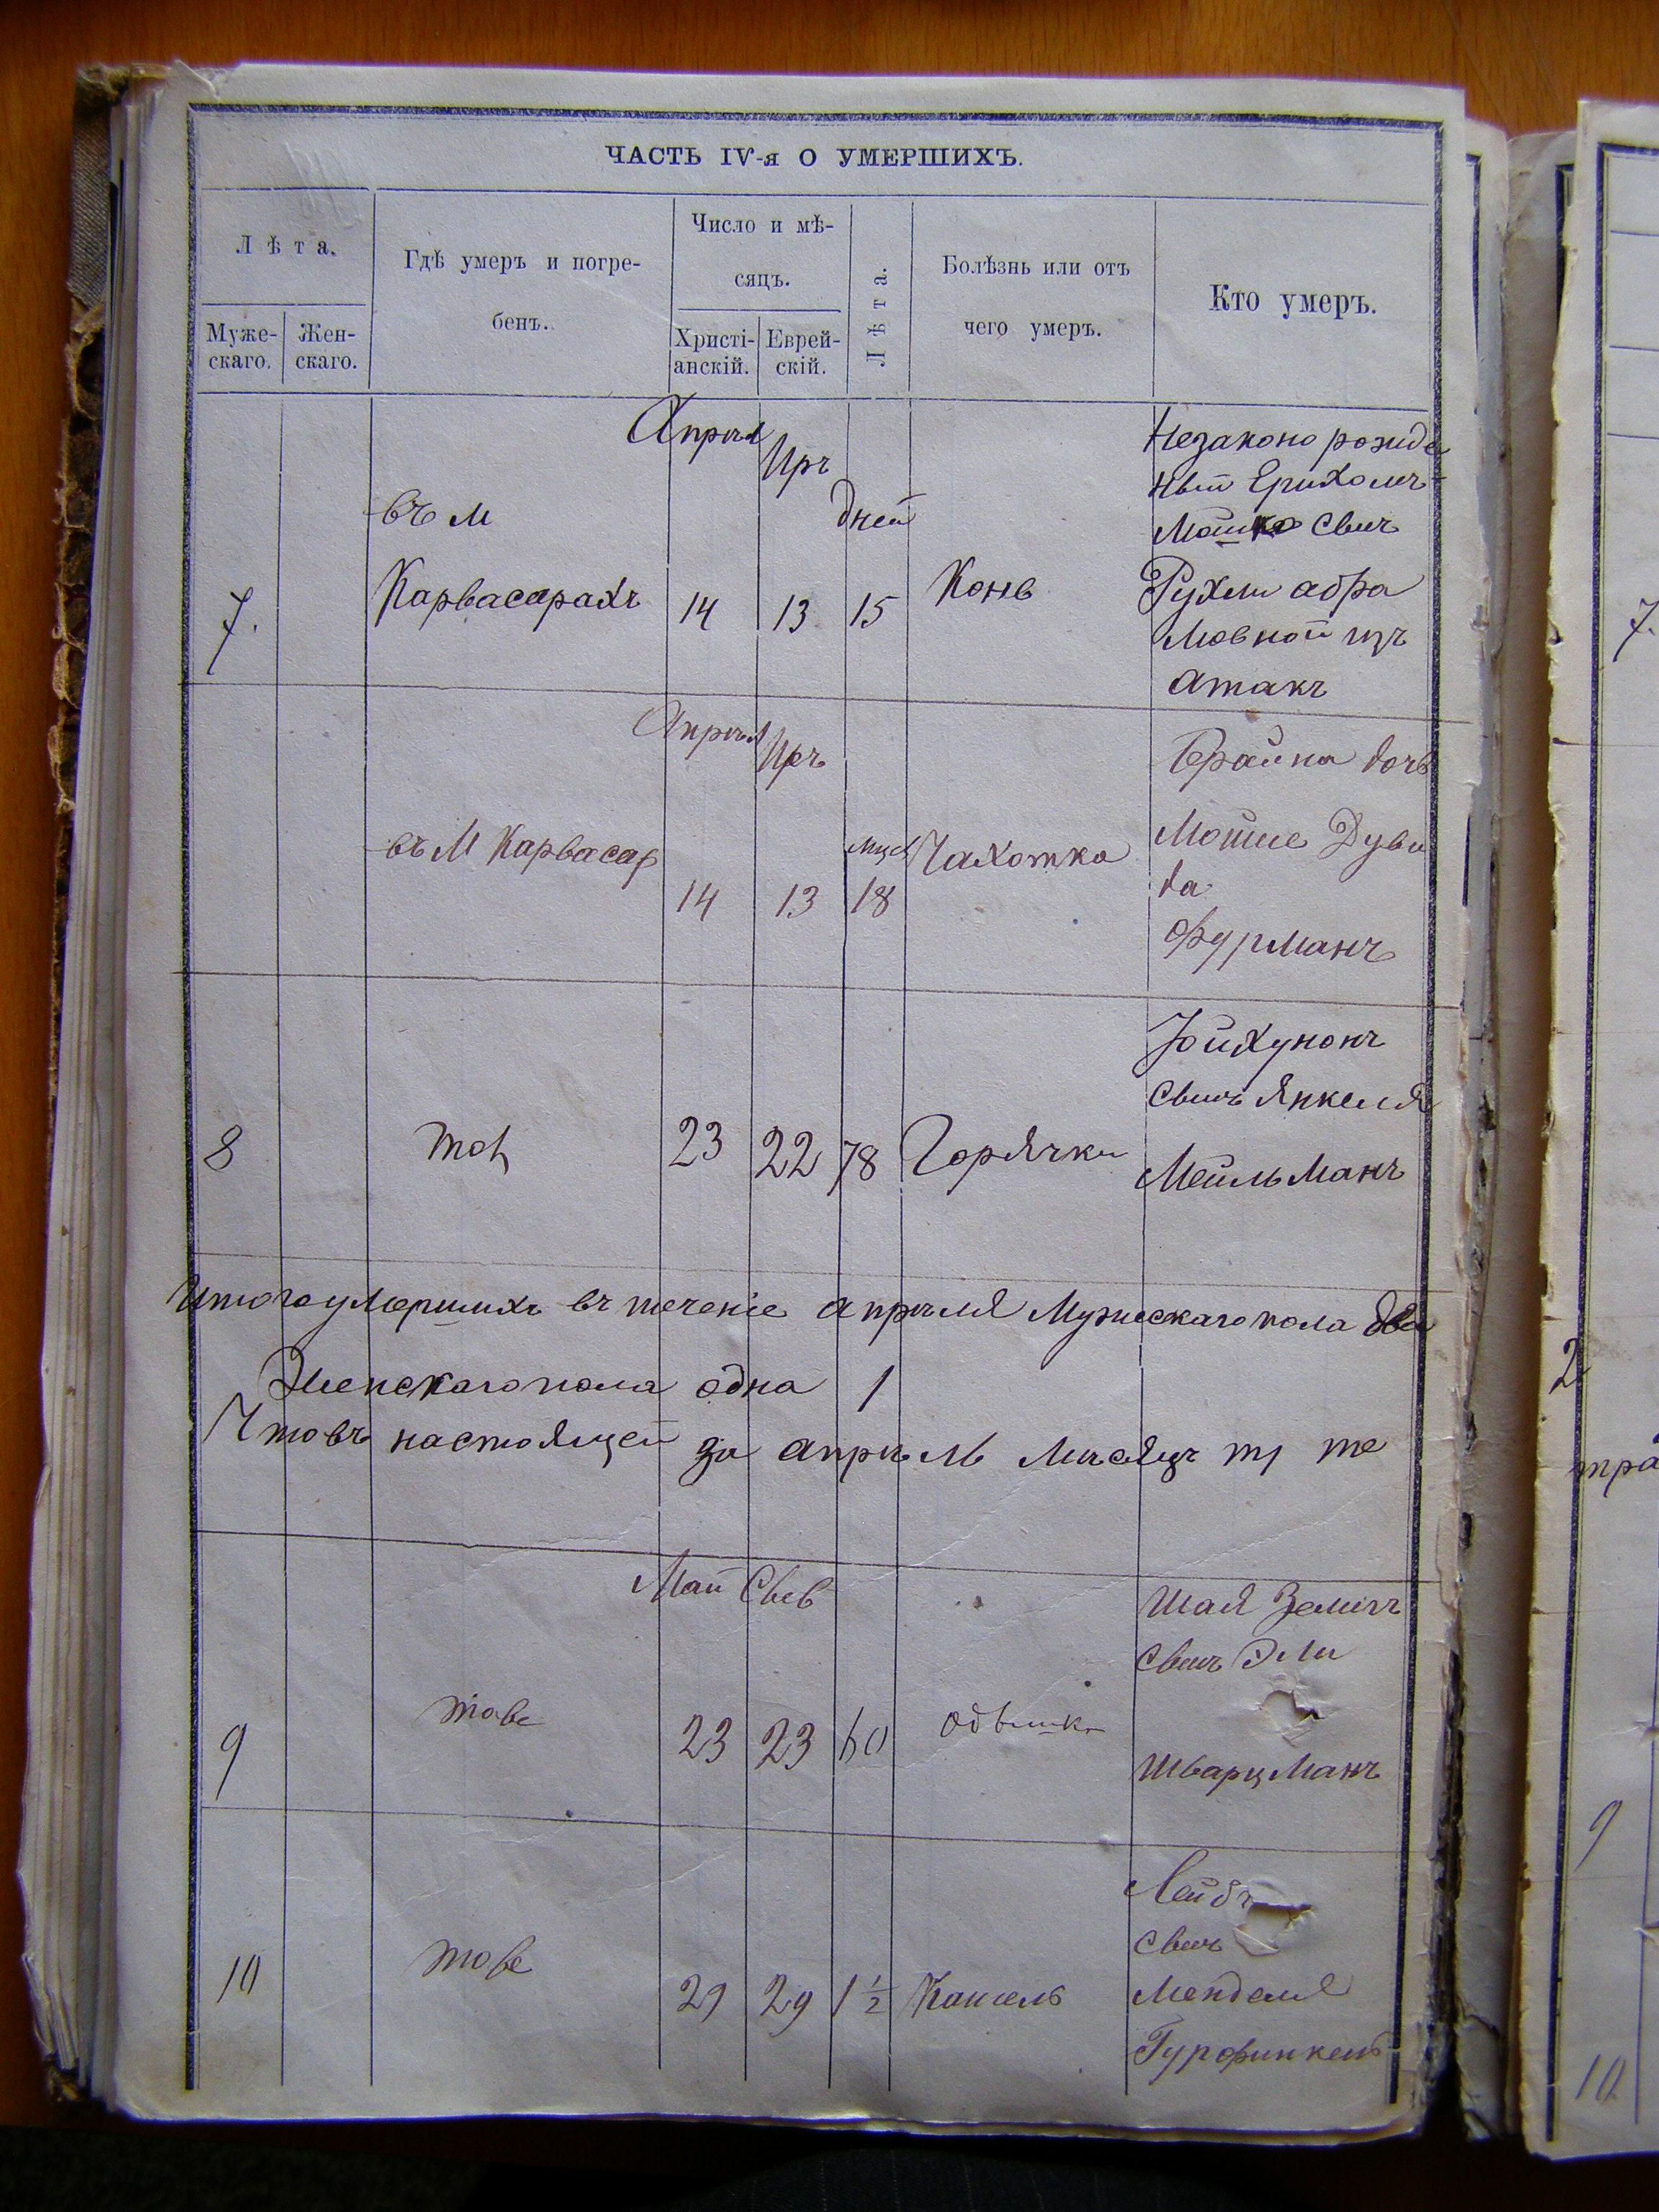 ЧАСТЬ IV-я О УМЕРШИХЪ.
Лѣта.
Муже-
скаго.
Жен-
скаго.
Гдѣ умеръ и погре-
бенъ.
Число и мѣ-
сяцъ.
Христі-
анскій.
Еврей-
скій.
Лѣта.
Болѣзнь или отъ
чего умеръ.
Кто умеръ.
7.
въ м
Карвасарахъ
Апрѣл
14
Иръ
13
дней
15
Незаконо рожде
ный
Мошко
Рухли абра
мовной изъ
атакъ
въ м Карвасар
Апрѣл
14
Иръ
13
мцев
18
Чахотка
Брайна дочь
Мошие Дуви
да
Фурманъ
8
23
22
78
Горячки
Юйхунонъ
сынъ Янкеля
Мейльманъ
Итого умершихъ въ теченіе апрѣля Мужескаго пола два
2
Женскаго пола одна 1
Чтовъ настоящей за апрѣль мѣсяцъ
9
тоже
Май
23
23
60
одышка
Шая Зелигъ
сынъ Эли
Шварцманъ
10
тоже
29
29
1 ½
Кашель
Лейбъ
сынъ
Менделя
Гурфинкель
7.
9
10